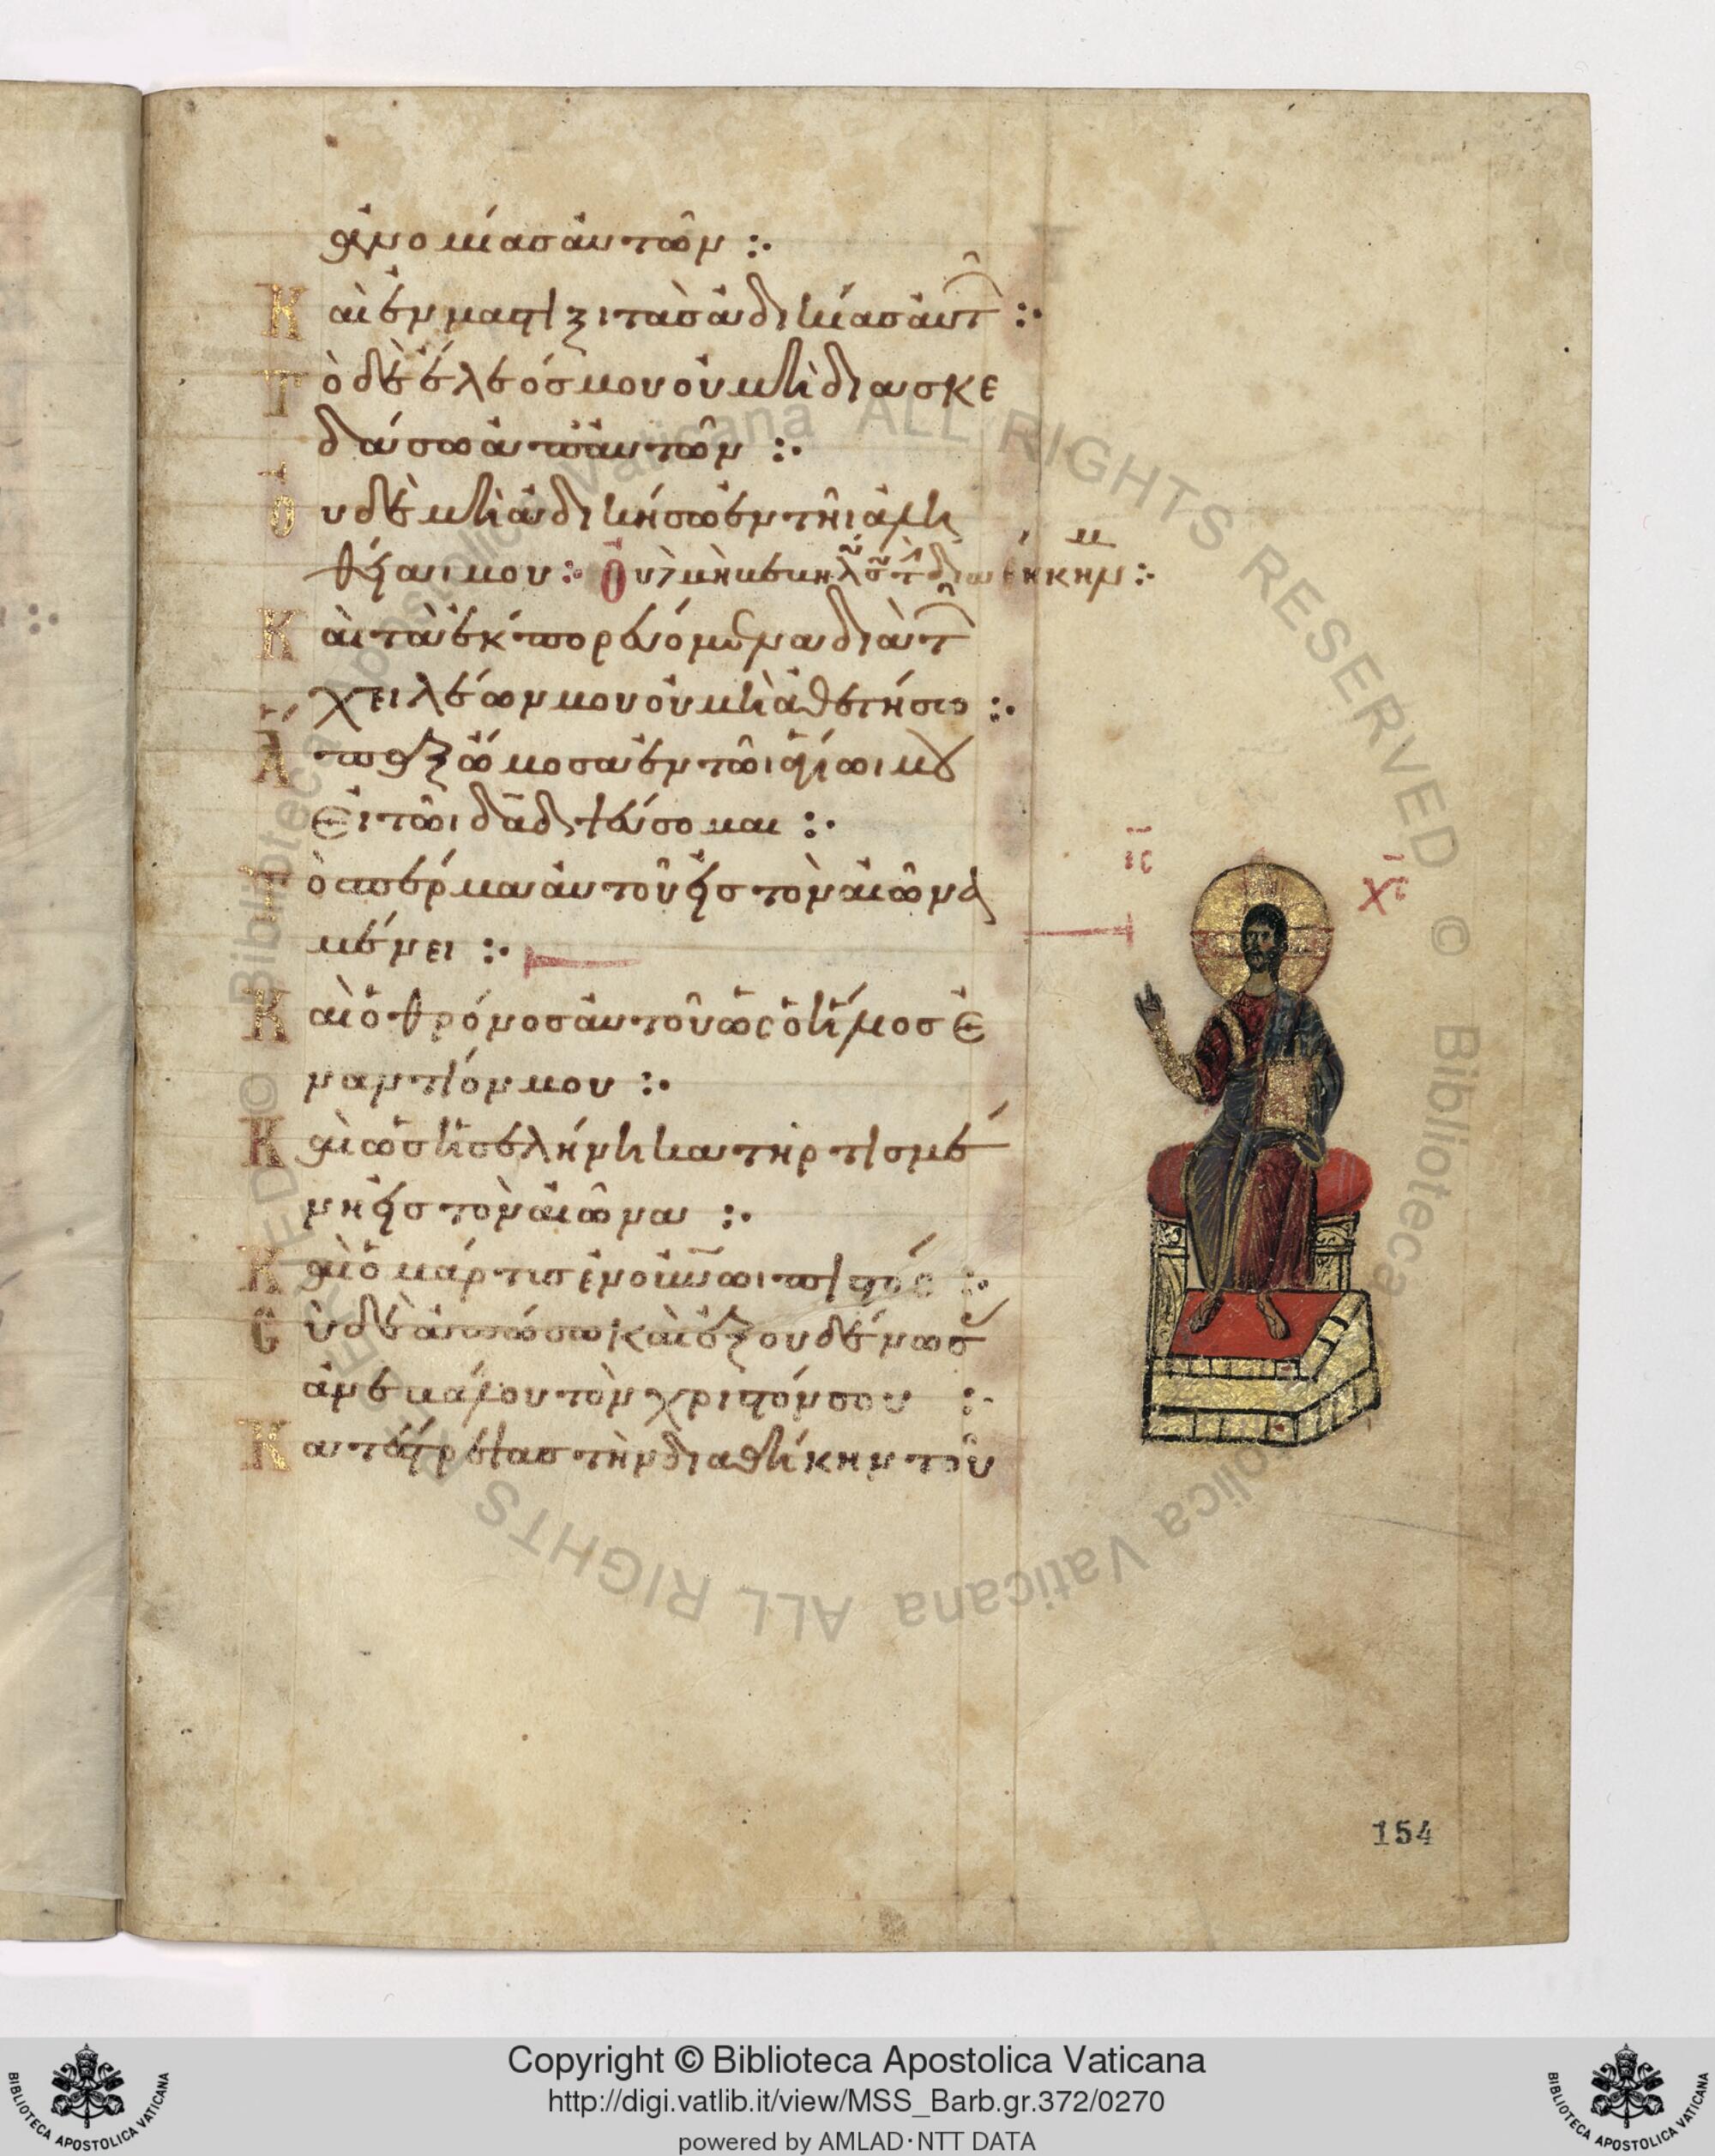 ἀνομίας αὐτῶν :·
Καὶ ἐν μάστιξι τὰς ἀδικίας αὐτ :·
Τὸ δὲ ἔλεός μου οὐ μὴ διασκε
δάσω ἀπ' αὐτῶν :·
Οὐδὲ μὴ ἀδικήσω ἐν τῆι ἀλη
θείαι μου : Οὐδ μὴ βεβηλ τ διαθήκην μ :·
Καὶ τὰ ἐκπορευόμενα διὰ τ
χειλέων μου οὐ μὴ ἀθετήσω :·
Ἅπαξ ὤμοσα ἐν τῶι ἁγίωι μου
Εἰ τῶι δᾱδ ψεύσομαι :·
Τὸ σπέρμα αὐτοῦ εἰς τὸν αἰῶνα
μένει :·
Καὶ ὁ θρόνος αὐτοῦ ὡς ὁ ἥλιος ἐ
ναντίον μου :·
Καὶ ὡς ἡ σελήνη κατηρτισμέ
νη εἰς τὸν αἰῶνα :·
Καὶ ὁ μάρτις ἐν οὐνωι πιστός :·
Σὺ δὲ ἀπώσω καὶ ἐξουδένωσ
ἀνεβάλου τὸν χριστόν σου :·
Κατέστρεψας τὴν διαθήκην τοῦ
ῑς̄ χ̄ς̄
154
Copyright © Biblioteca Apostolica Vaticana
http://digi.vatlib.it/view/MSS_Barb.gr.372/0270
powered by AMLAD·NTT DATA
BIBLIOTECA APOSTOLICA VATICANA
BIBLIOTECA APOSTOLICA VATICANA
© Biblioteca Apostolica Vaticana ALL RIGHTS RESERVED © Biblioteca Apostolica Vaticana ALL RIGHTS RESERVED